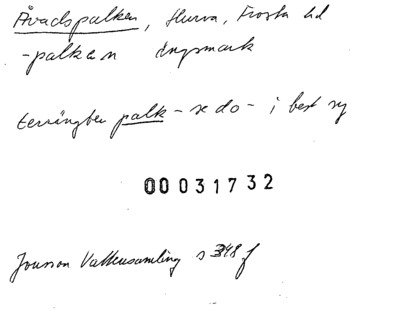 Åvadspalken, Hurva, Frosta hd
-palken ängsmark
terrängben palk - se do - i best sg
00 031732
Jonsson Vattensamling s 348 f